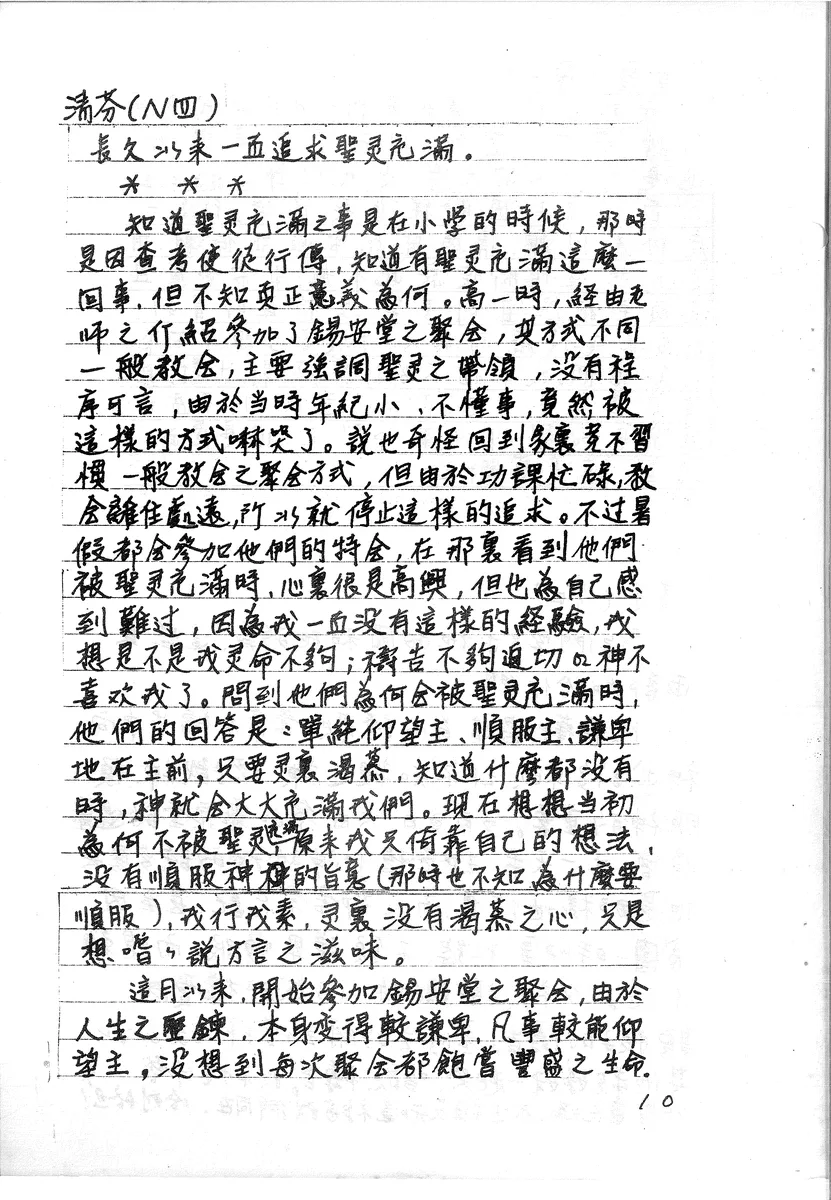 清芬(N四)
長久以来一直追求聖灵充滿。
* * *
知道聖灵充滿之事是在小学的時候,那時
是因查考使徒行傳,知道有聖灵充滿這麼一
回事,但不知真正意義為何。高一時,経由老
师之介紹參加了錫安堂之聚会,其方式不同
一般教会,主要強調聖灵之帶領,没有程
序可言,由於当時年紀小、不懂事,竟然被
這樣的方式嚇哭了。説也奇怪回到家裏竟不習
慣一般教会之聚会方式,但由於功課忙碌,教
会離住處遠,所以就停止這樣的追求。不过暑
假都会參加他們的特会,在那裏看到他們
被聖灵充滿時,心裏很是高興,但也為自己感
到難过,因為我一直没有這樣的経驗,我
想是不是我灵命不夠;禱告不夠迫切or神不
喜欢我了。問到他們為何会被聖灵充滿時,
他們的回答是:單純仰望主、順服主、謙卑
地在主前,只要灵裏渴慕,知道什麼都没有
時,神就会大大充滿我們。现在想想当初
為何不被聖灵充滿,原来我只倚靠自己的想法,
没有順服神的旨意(那時也不知為什麼要
順服),我行我素,灵裏没有渴慕之心,只是
想嚐々説方言之滋味。
這月以来,開始參加錫安堂之聚会,由於
人生之壓鍊,本身变得較謙卑,凡事較能仰
望主。没想到每次聚会都飽嘗豐盛之生命。
10